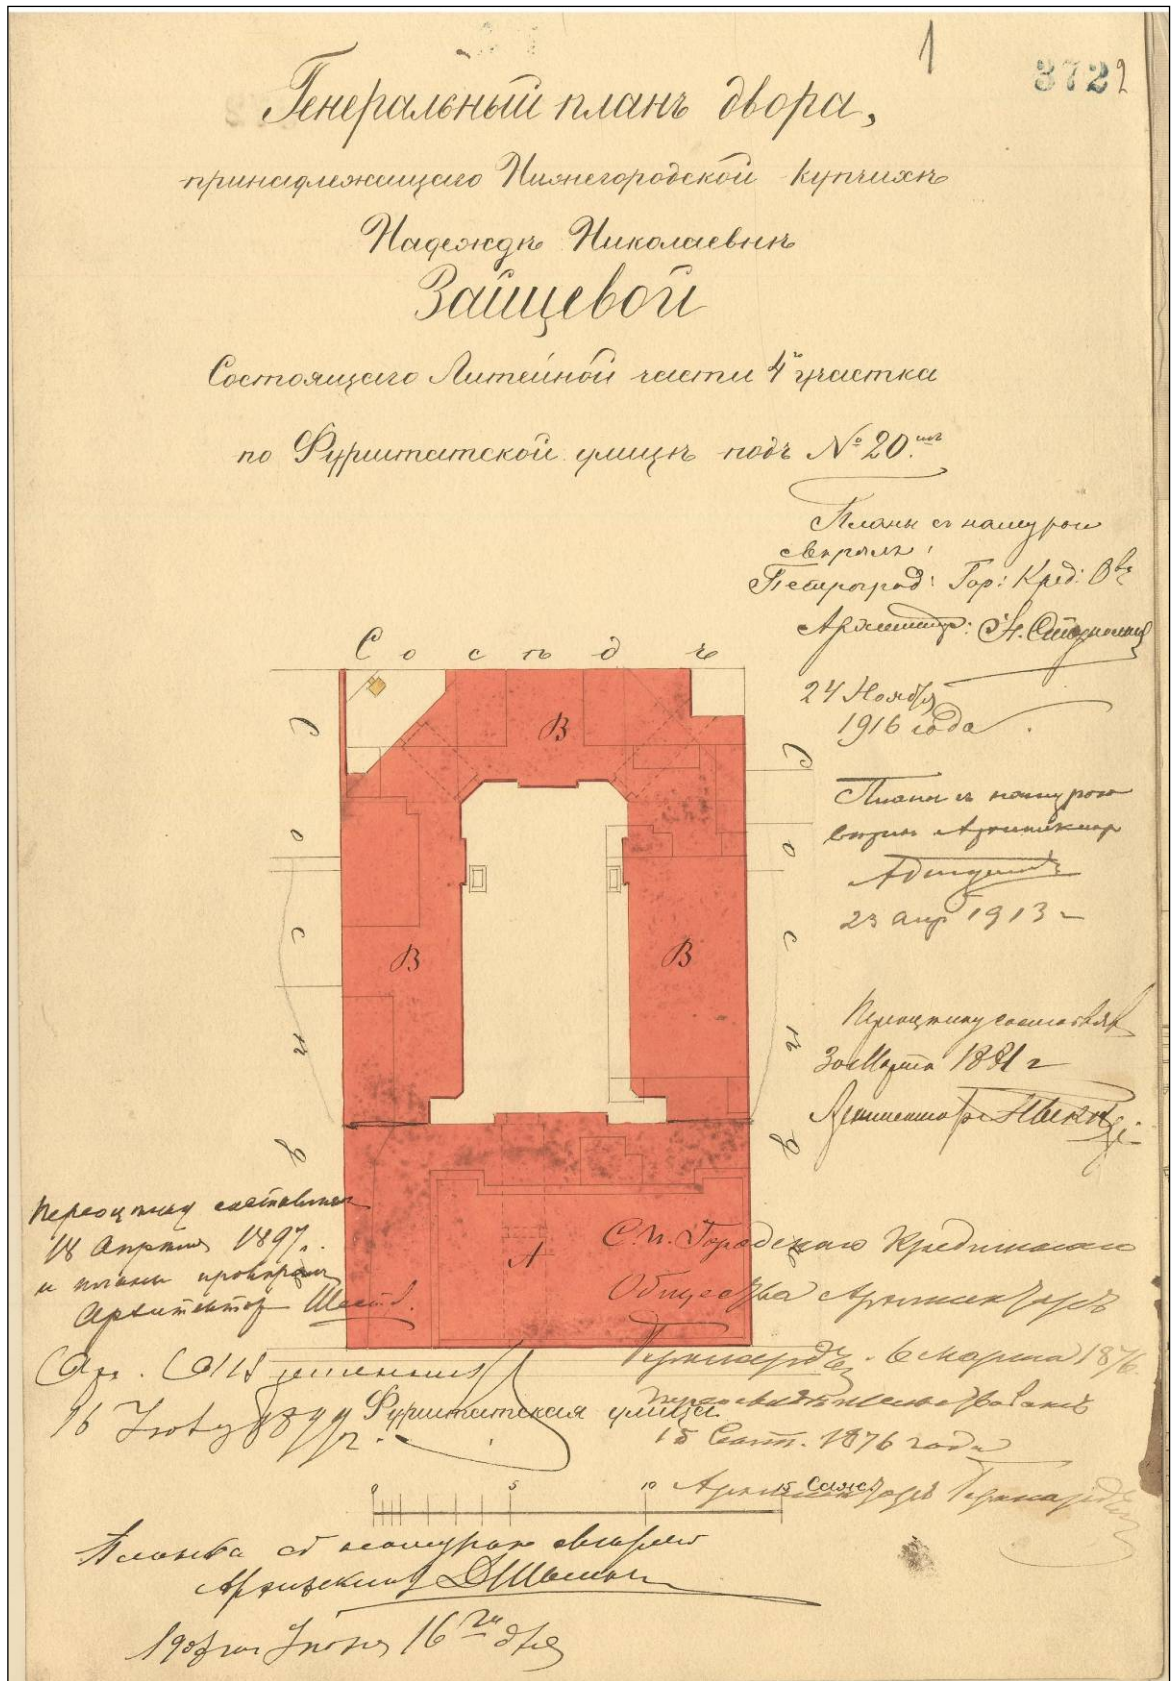 1
3722
Генеральный планъ двора,
принадлежащаго Нижегородской купчихѣ
Надеждѣ Николаевнѣ
Зайцевой
Состоящаго Литейной части 4го участка
по Фурштатской улицѣ подъ № 20.мъ
Планъ съ натурою
свѣрялъ:
Петроград: Гор: Кред: О-ва
Архитект:
24 Ноября
1916 года
Сосѣдъ
В
Сосѣд
Сосѣд
Планъ съ натурою
Архитекторъ
23 апр 1913 г
В
В
Переоцѣнку составлялъ
30 Марта 1881 г
Архитекторъ
Переоцѣнку составлялъ
18 Апрѣля 1897 г.
и планъ провѣрялъ
Архитекторъ
А
С.П. Городскаго Кредитнаго
Общества Архитекторъ
6 марта 1876
16
Фурштатская улица
15 Сент. 1876 года
Архитекторъ
0 5 10 15 Саж.
съ натурою свѣрялъ
Архитектор
Июня 16го дня